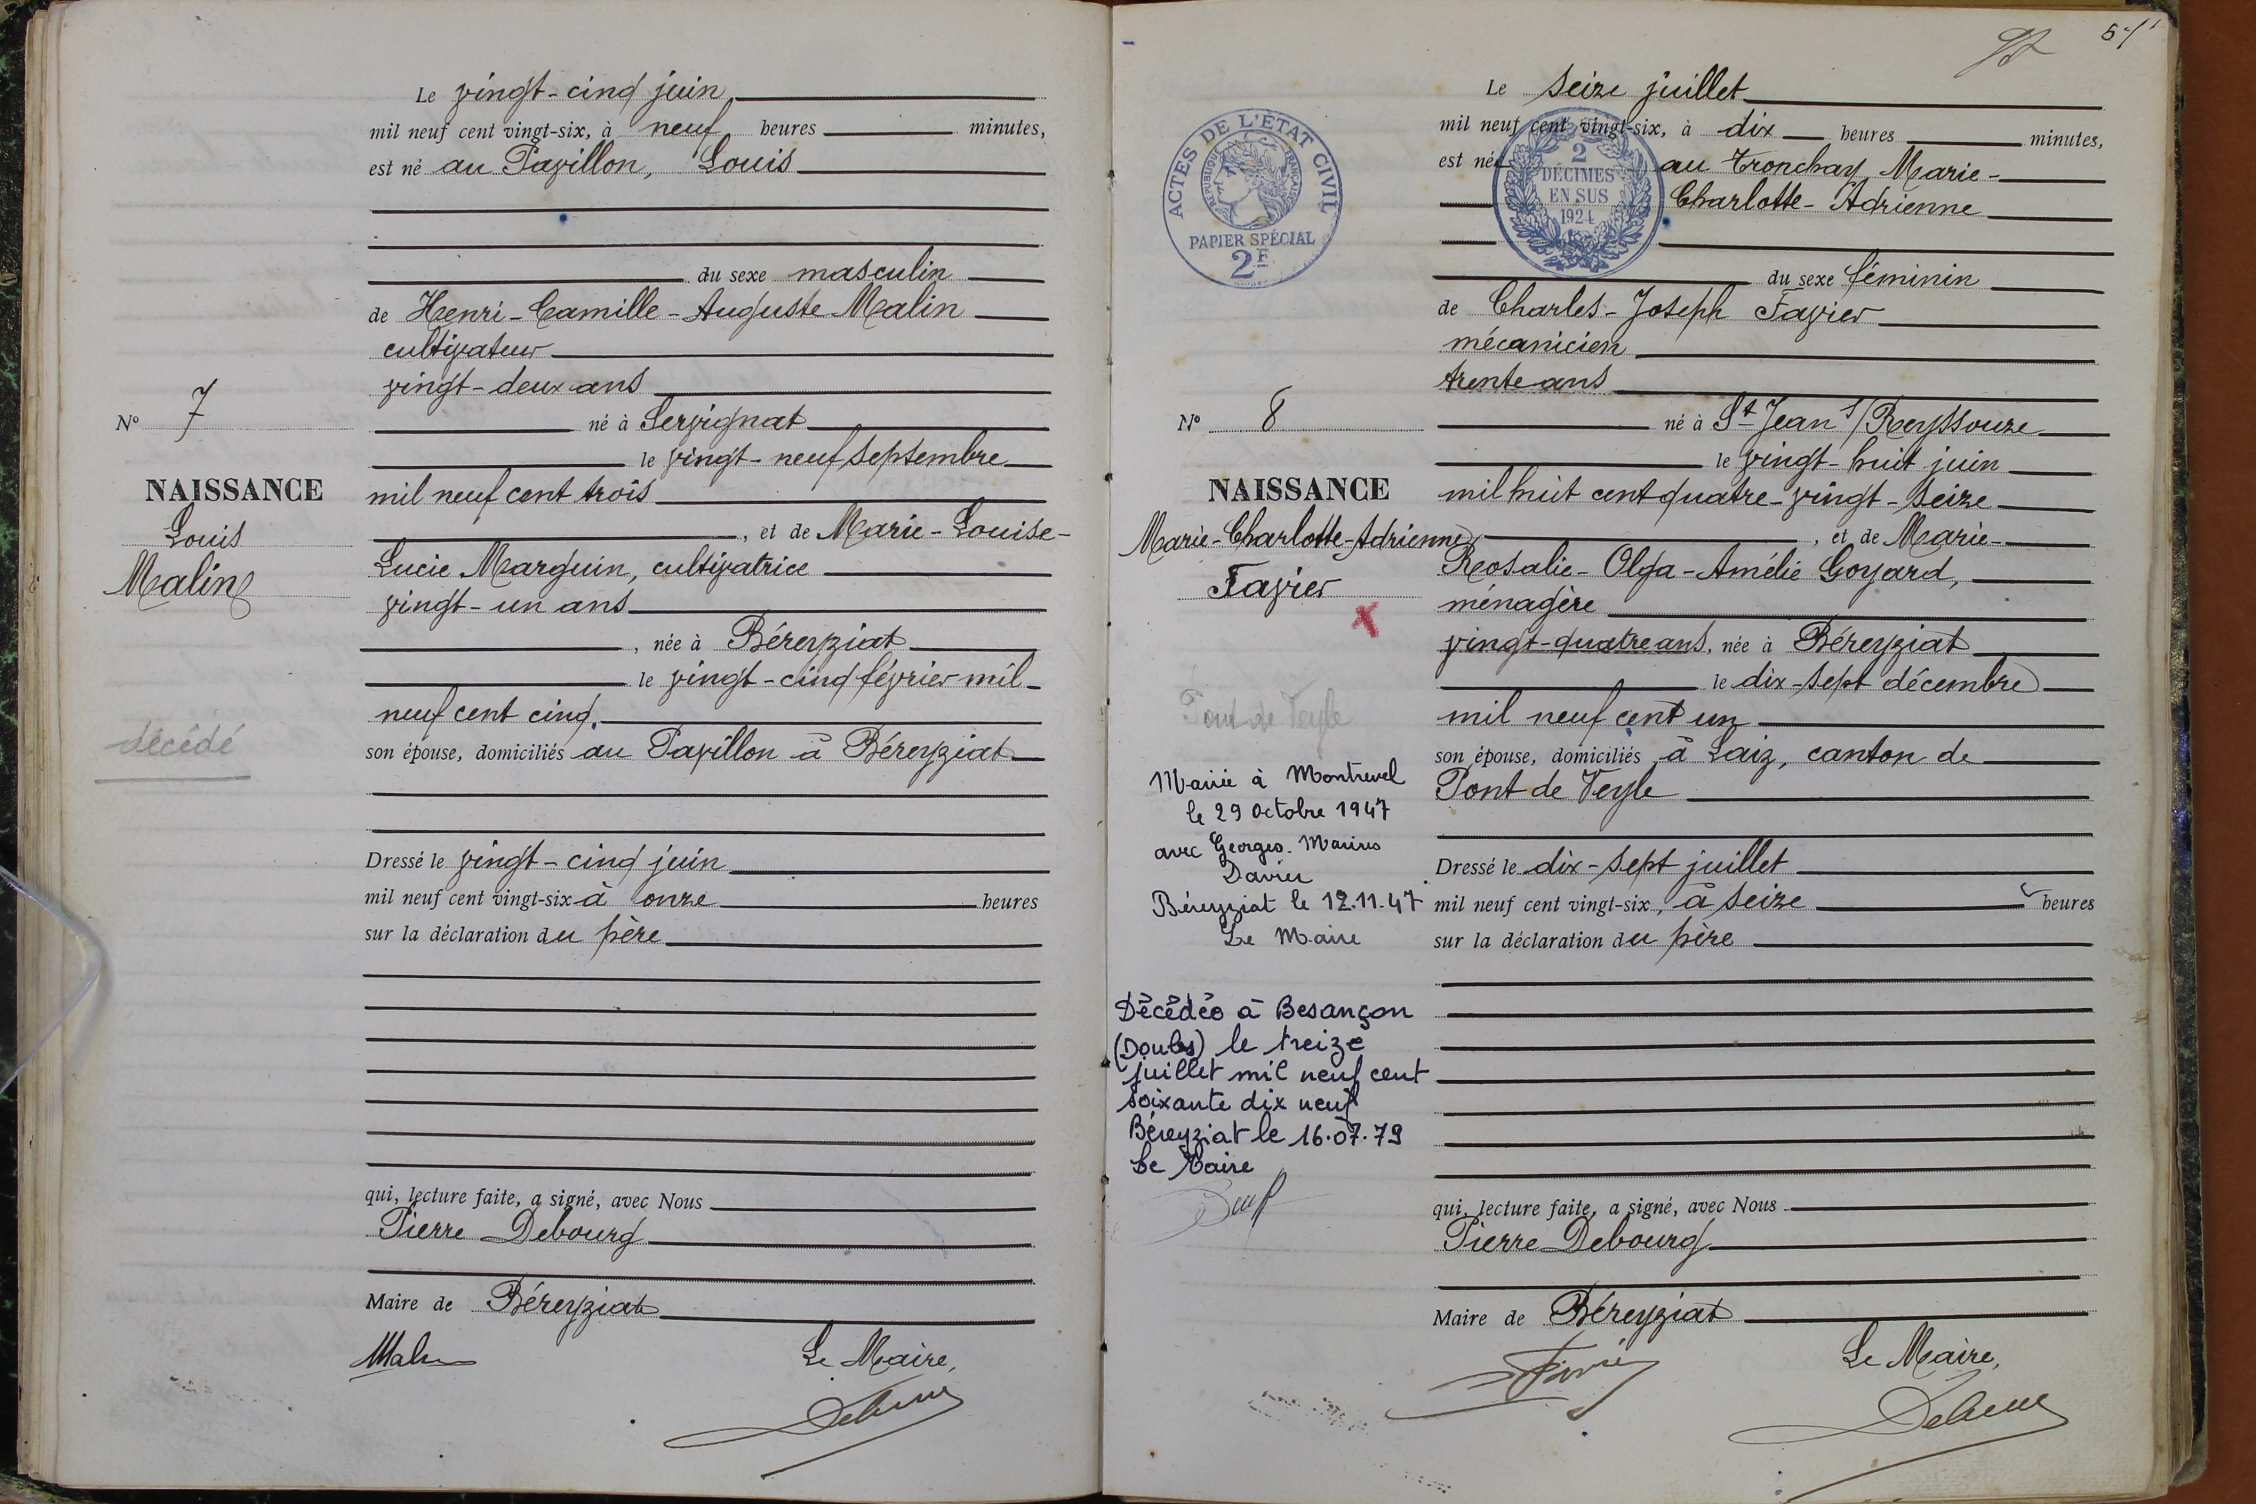 Le vingt-cinq juin
mil neuf cent vingt-six, à neuf heures minutes,
est né au Pavillon, Louis
du sexe masculin
de Henri-Camille-Auguste Malin
cultivateur
vingt-deux ans
né à Servignat
le vingt-neuf septembre
mil neuf cent trois
, et de Marie-Louise-
Lucie Marguin, cultivatrice
vingt-un ans
, née à Béreyziat
le vingt-cinq février mil
neuf cent cinq,
son épouse, domiciliés au Pavillon à Béreyziat
Dressé le vingt-cinq juin
mil neuf cent vingt-six à onze heures
sur la déclaration du père
qui, lecture faite, a signé, avec Nous
Pierre Debourg
Maire de Béreyziat
Malin
Le Maire,
No 7
NAISSANCE
Louis
Malin
décédé
57
Le seize juillet
mil neuf cent vingt-six, à dix heures minutes,
est née au Tronchay, Marie-
Charlotte-Adrienne
du sexe féminin
de Charles-Joseph Favier
mécanicien
trente ans
né à St Jean s/Reyssouze
le vingt-huit juin
mil huit cent quatre-vingt-seize
, et de Marie-
Rosalie-Olga-Amélie Goyard,
ménagère
vingt-quatre ans, née à Béreyziat
le dix-sept décembre
mil neuf cent un
son épouse, domiciliés à Laiz, canton de
Pont de Veyle
Dressé le dix-sept juillet
mil neuf cent vingt-six, à seize heures
sur la déclaration du père
qui, lecture faite, a signé, avec Nous
Pierre Debourg
Maire de Béreyziat
Le Maire,
ACTES DE L'ÉTAT CIVIL
RÉPUBLIQUE FRANÇAISE
PAPIER SPÉCIAL
2F
2
DÉCIMES
EN SUS
1924
No 8
NAISSANCE
Marie-Charlotte-Adrienne
Favier
x
Pont de Veyle
Mariée à Montrevel
le 29 octobre 1947
avec Georges-Marius
Davier
Béreyziat le 12.11.47
Le Maire
Décédée à Besançon
(Doubs) le treize
juillet mil neuf cent
soixante dix neuf
Béreyziat le 16.07.79
Le Maire